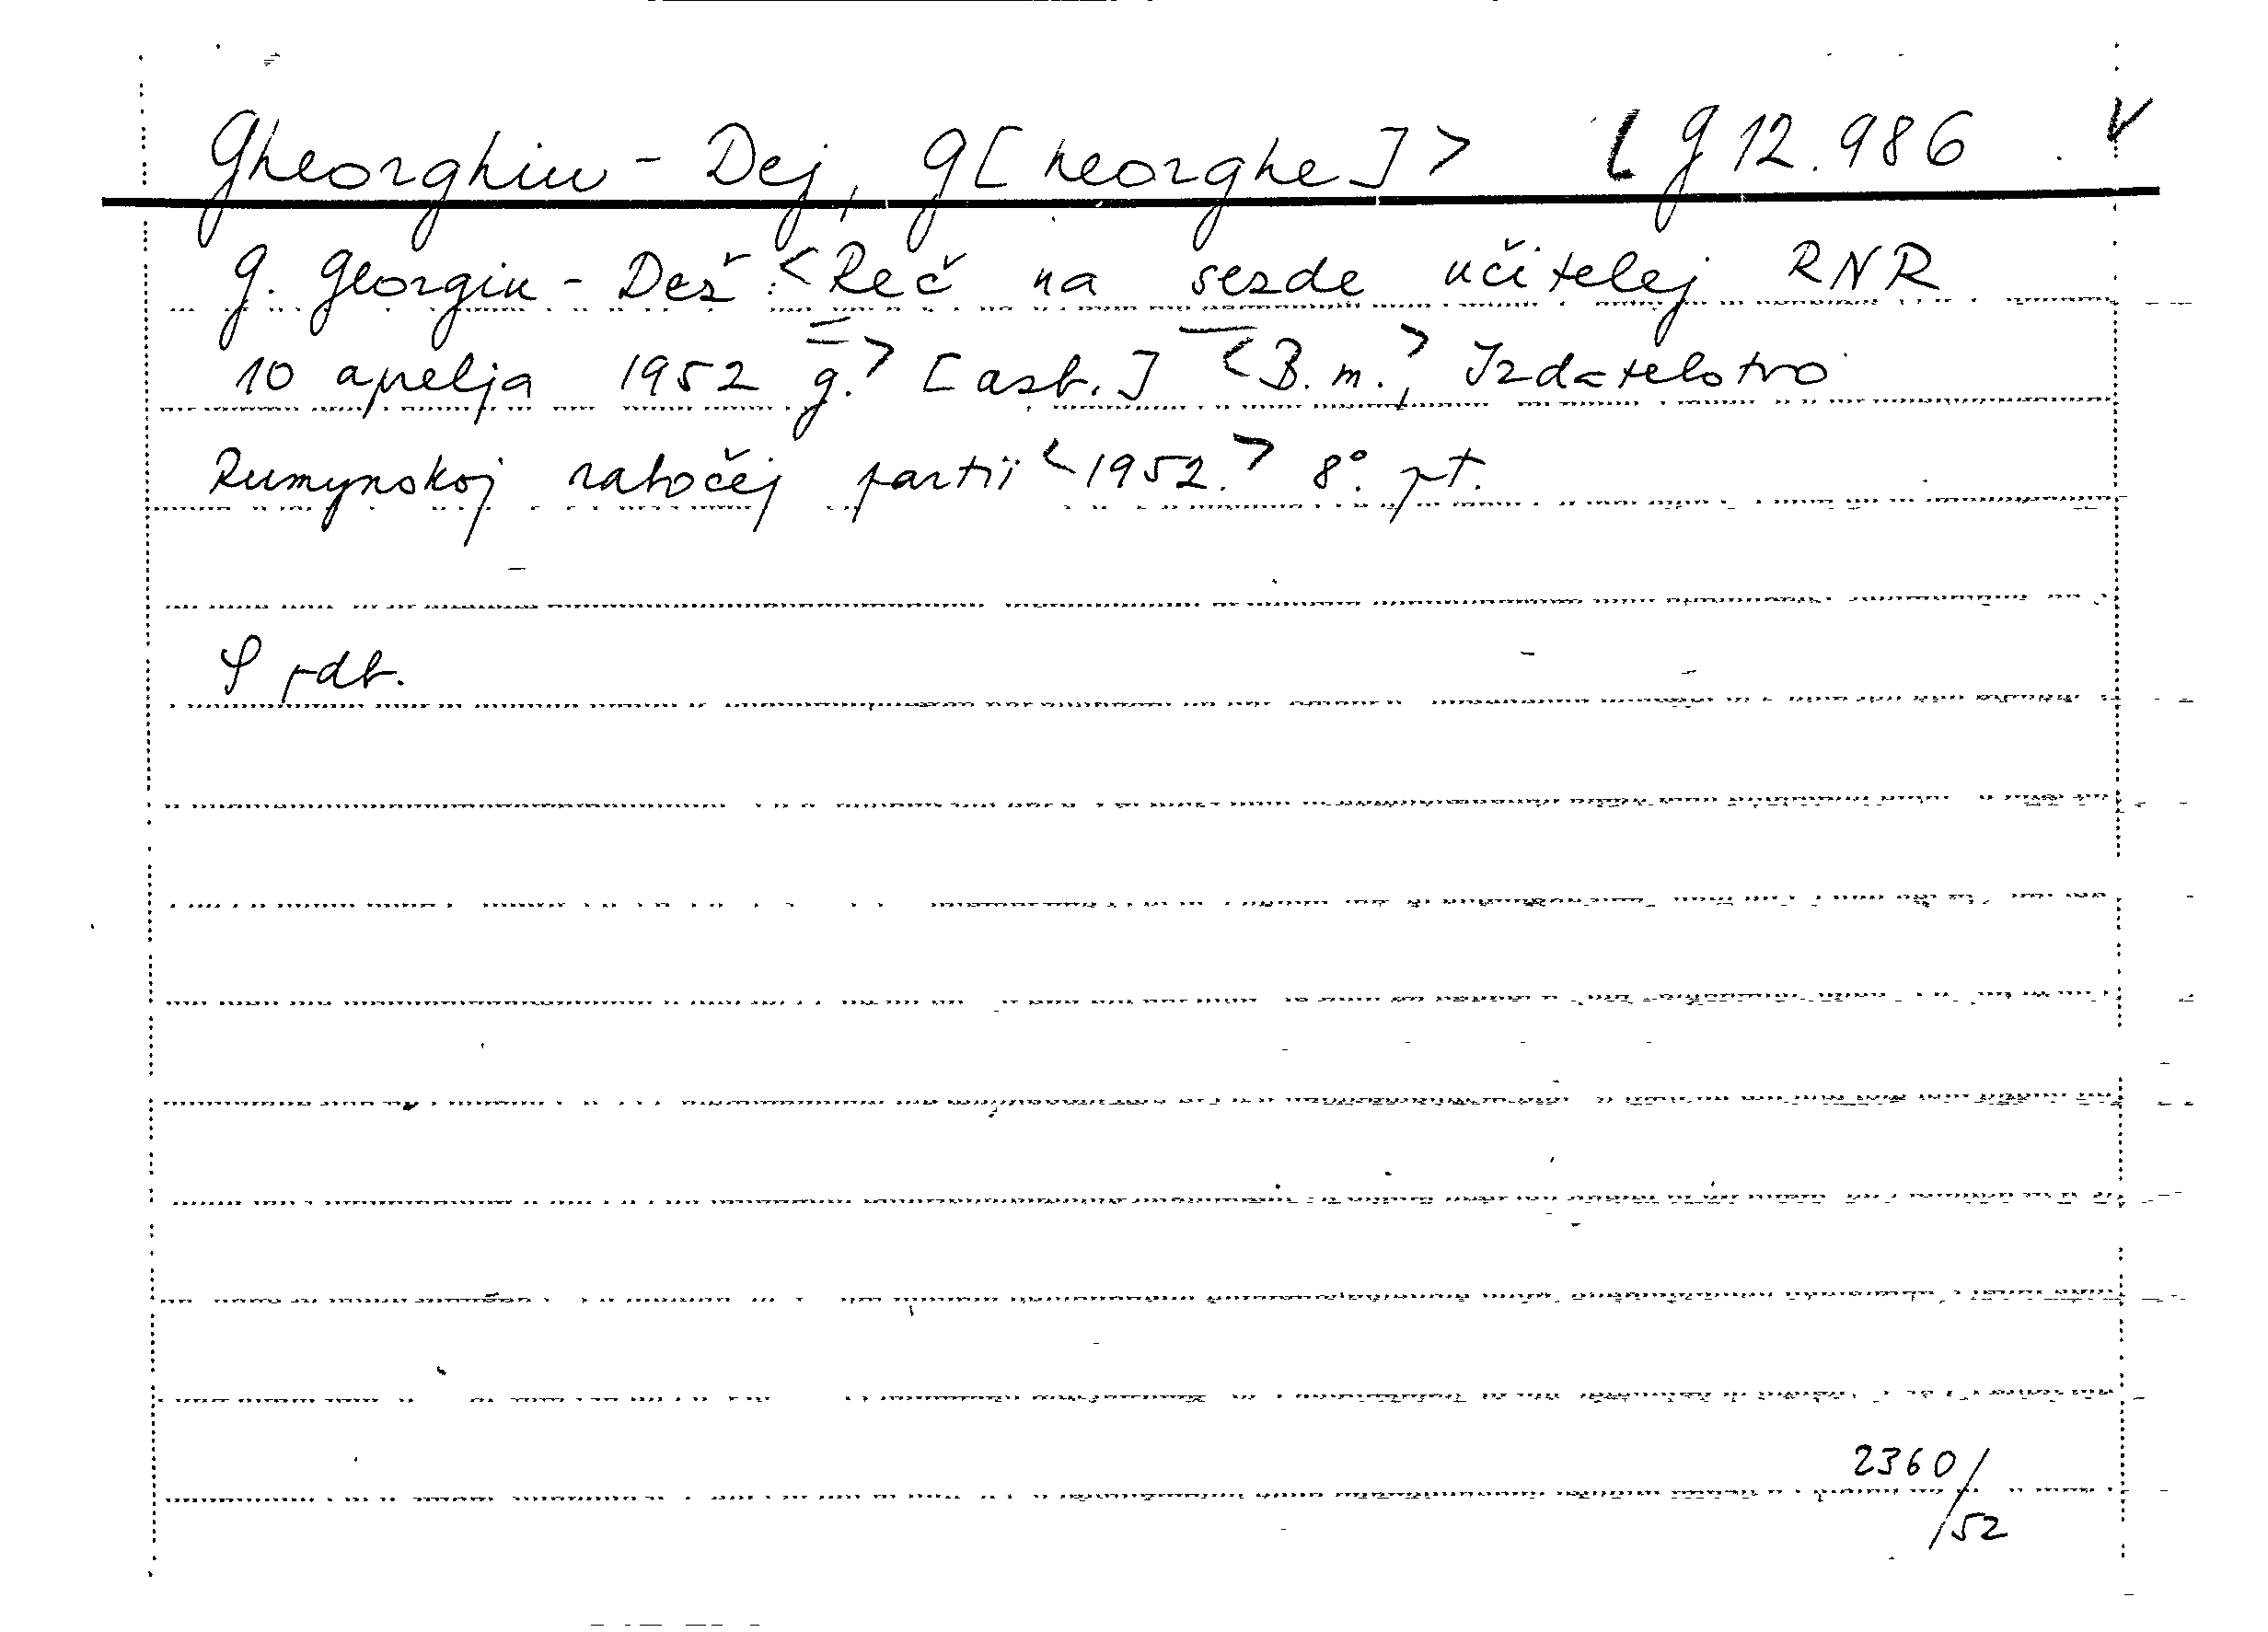 Gheorghiu-Dej, G[heorghe]> G 12.986
G. Georgiu-Dež: <Reč na sezde učitelej RNR
10 aprelja 1952 g.> [asb.] <B.m.,> Izdatelstvo
Rumynskoj rabočej partii <1952.> 8°. pt.
pdb.
2360/52